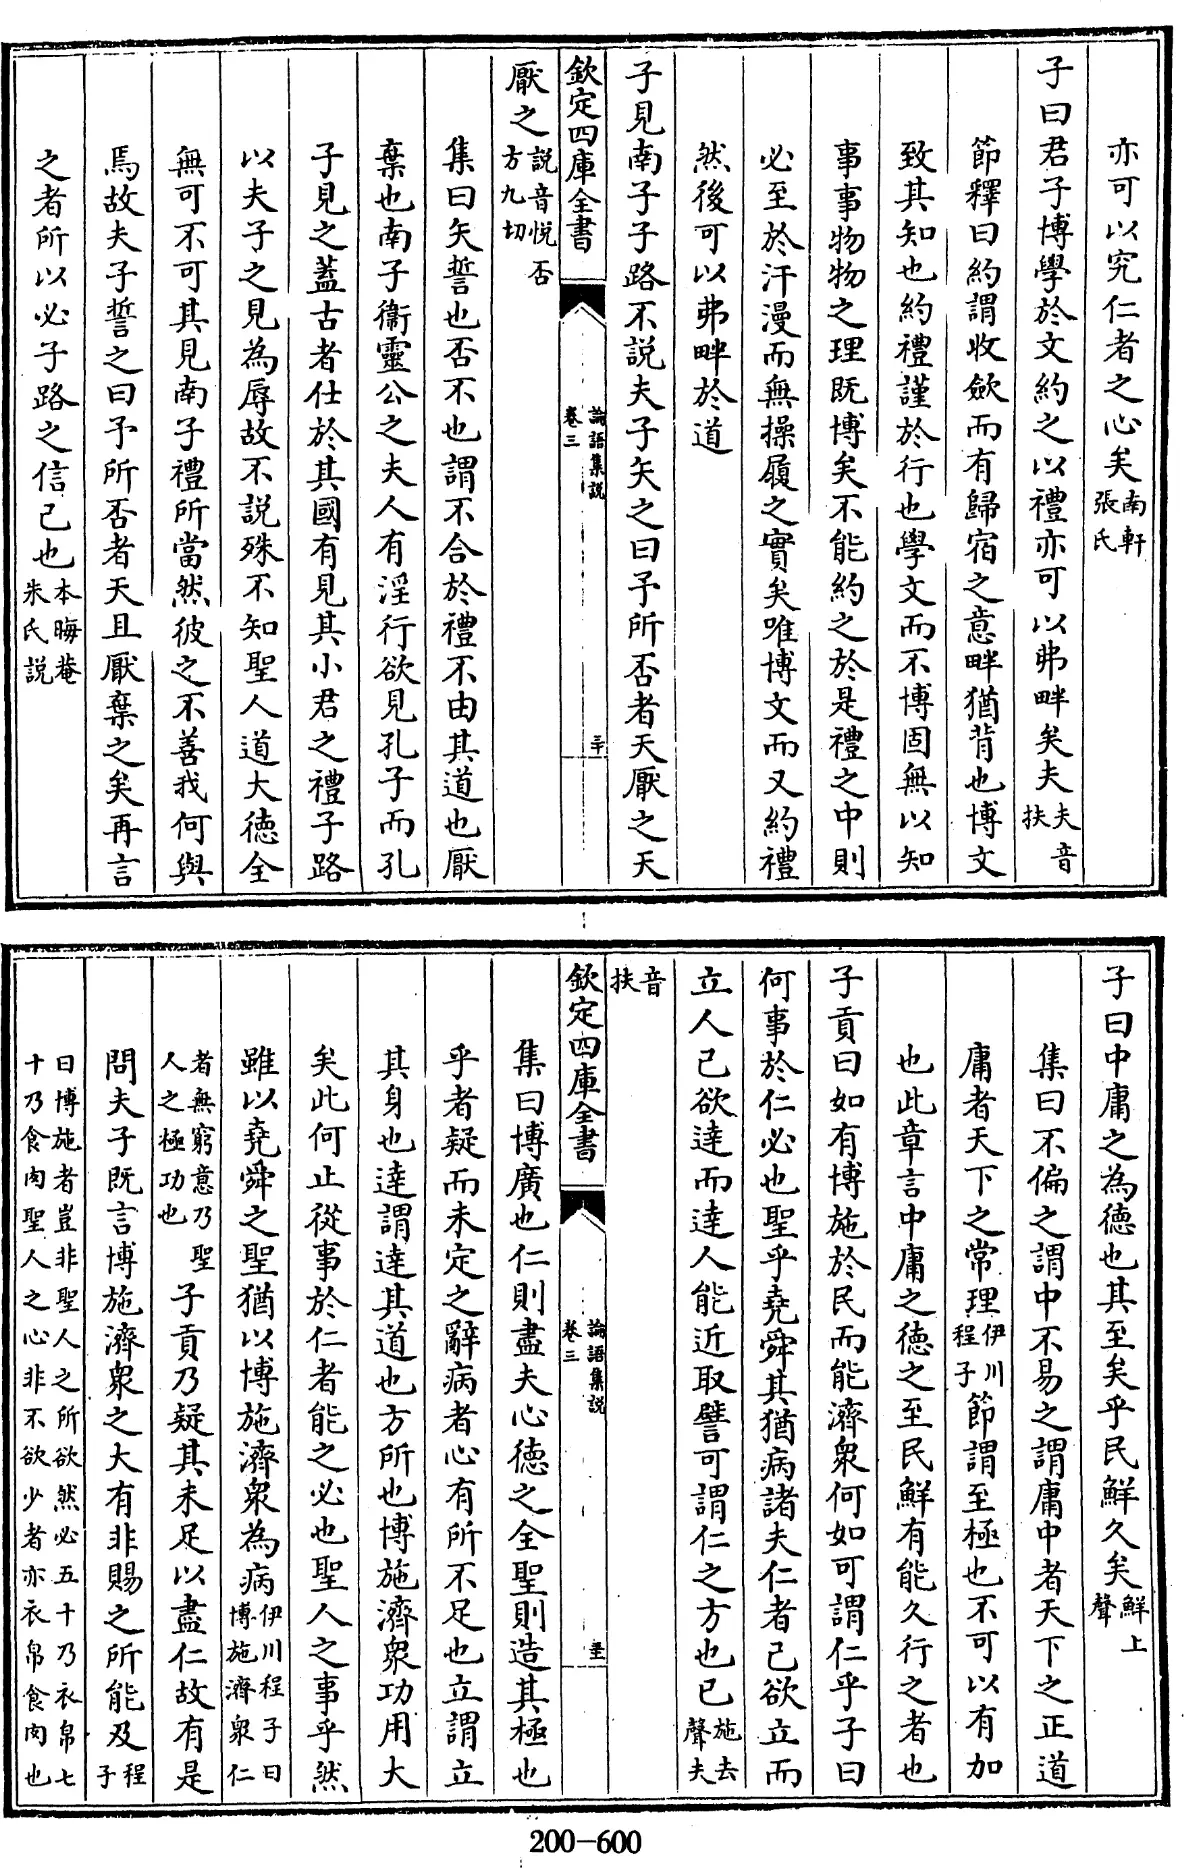 亦可以究仁者之心矣南軒張氏
子曰君子博學於文約之以禮亦可以弗畔矣夫夫音扶
節釋曰約謂收斂而有歸宿之意畔猶背也博文
致其知也約禮謹於行也學文而不博固無以知
事事物物之理既博矣不能約之於是禮之中則
必至於汗漫而無操履之實矣唯博文而又約禮
然後可以弗畔於道
子見南子子路不説夫子矢之曰予所否者天厭之天
欽定四庫全書
論語集説
卷三
三十
厭之説音悅否方九切
集曰矢誓也否不也謂不合於禮不由其道也厭
棄也南子衞靈公之夫人有淫行欲見孔子而孔
子見之蓋古者仕於其國有見其小君之禮子路
以夫子之見為辱故不説殊不知聖人道大德全
無可不可其見南子禮所當然彼之不善我何與
焉故夫子誓之曰予所否者天且厭棄之矣再言
之者所以必子路之信己也本晦菴朱氏説
子曰中庸之為德也其至矣乎民鮮久矣鮮上聲
集曰不偏之謂中不易之謂庸中者天下之正道
庸者天下之常理伊川程子節謂至極也不可以有加
也此章言中庸之德之至民鮮有能久行之者也
子貢曰如有博施於民而能濟衆何如可謂仁乎子曰
何事於仁必也聖乎堯舜其猶病諸夫仁者己欲立而
立人己欲達而達人能近取譬可謂仁之方也已施去聲夫
音扶
欽定四庫全書
論語集説
卷三
三十一
集曰博廣也仁則盡夫心德之全聖則造其極也
乎者疑而未定之辭病者心有所不足也立謂立
其身也達謂達其道也方所也博施濟衆功用大
矣此何止從事於仁者能之必也聖人之事乎然
雖以堯舜之聖猶以博施濟衆為病伊川程子曰博施濟衆仁
者無窮意乃聖人之極功也子貢乃疑其未足以盡仁故有是
問夫子既言博施濟衆之大有非賜之所能及程子
曰博施者豈非聖人之所欲然必五十乃衣帛七
十乃食肉聖人之心非不欲少者亦衣帛食肉也
200-600